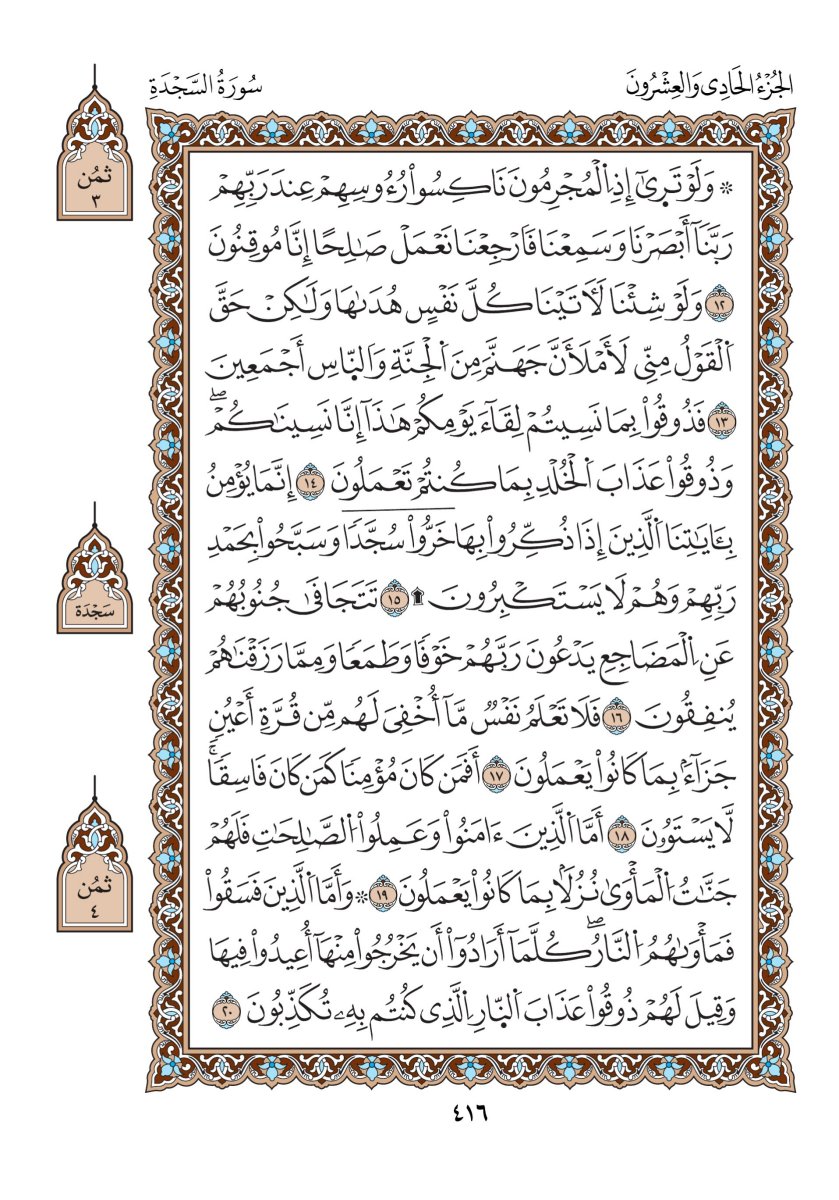 الجُزْءُ الحَادِى وَالعِشْرُونَ
سُورَةُ السَّجْدَةِ
ثمُن
٣
۞ وَلَوْ تَرىٰٓ إِذِ اِ۬لْمُجْرِمُونَ نَاكِسُواْ رُءُوسِهِمْ عِندَ رَبِّهِمْ
رَبَّنَآ أَبْصَرْنَا وَسَمِعْنَا فَارْجِعْنَا نَعْمَلْ صَٰلِحًا إِنَّا مُوقِنُونَ
١٢ وَلَوْ شِئْنَا لَأٓتَيْنَا كُلَّ نَفْسٍ هُدَىٰهَا وَلَٰكِنْ حَقَّ
اَ۬لْقَوْلُ مِنِّى لَأَمْلَأَنَّ جَهَنَّمَ مِنَ اَ۬لْجِنَّةِ وَالنَّاسِ أَجْمَعِينَ
١٣ فَذُوقُواْ بِمَا نَسِيتُمْ لِقَآءَ يَوْمِكُمْ هَٰذَآ إِنَّا نَسِينَٰكُمْۖ
وَذُوقُواْ عَذَابَ اَ۬لْخُلْدِ بِمَا كُنتُمْ تَعْمَلُونَ ١٤ إِنَّمَا يُؤْمِنُ
بِـَٔايَٰتِنَا اَ۬لَّذِينَ إِذَا ذُكِّرُواْ بِهَا خَرُّواْ سُجَّدًا وَسَبَّحُواْ بِحَمْدِ
سَجْدَة
رَبِّهِمْ وَهُمْ لَا يَسْتَكْبِرُونَ ۩ ١٥ تَتَجَافىٰ جُنُوبُهُمْ
عَنِ اِ۬لْمَضَاجِعِ يَدْعُونَ رَبَّهُمْ خَوْفًا وَطَمَعًا وَمِمَّا رَزَقْنَٰهُمْ
يُنفِقُونَ ١٦ فَلَا تَعْلَمُ نَفْسٌ مَّآ أُخْفِىَ لَهُم مِّن قُرَّةِ أَعْيُنٍ
جَزَآءًۢ بِمَا كَانُواْ يَعْمَلُونَ ١٧ أَفَمَن كَانَ مُؤْمِنًا كَمَن كَانَ فَاسِقًاۚ
لَّا يَسْتَوُۥنَ ١٨ أَمَّا اَ۬لَّذِينَ ءَامَنُواْ وَعَمِلُواْ اُ۬لصَّٰلِحَٰتِ فَلَهُمْ
جَنَّٰتُ اُ۬لْمَأْوىٰ نُزُلًۢا بِمَا كَانُواْ يَعْمَلُونَ ١٩ ۞ وَأَمَّا اَ۬لَّذِينَ فَسَقُواْ
ثمُن
٤
فَمَأْوَىٰهُمُ اُ۬لنَّارُۖ كُلَّمَآ أَرَادُوٓاْ أَن يَخْرُجُواْ مِنْهَآ أُعِيدُواْ فِيهَا
وَقِيلَ لَهُمْ ذُوقُواْ عَذَابَ اَ۬لنّارِ اِ۬لَّذِى كُنتُم بِهِۦ تُكَذِّبُونَ ٢٠
٤١٦